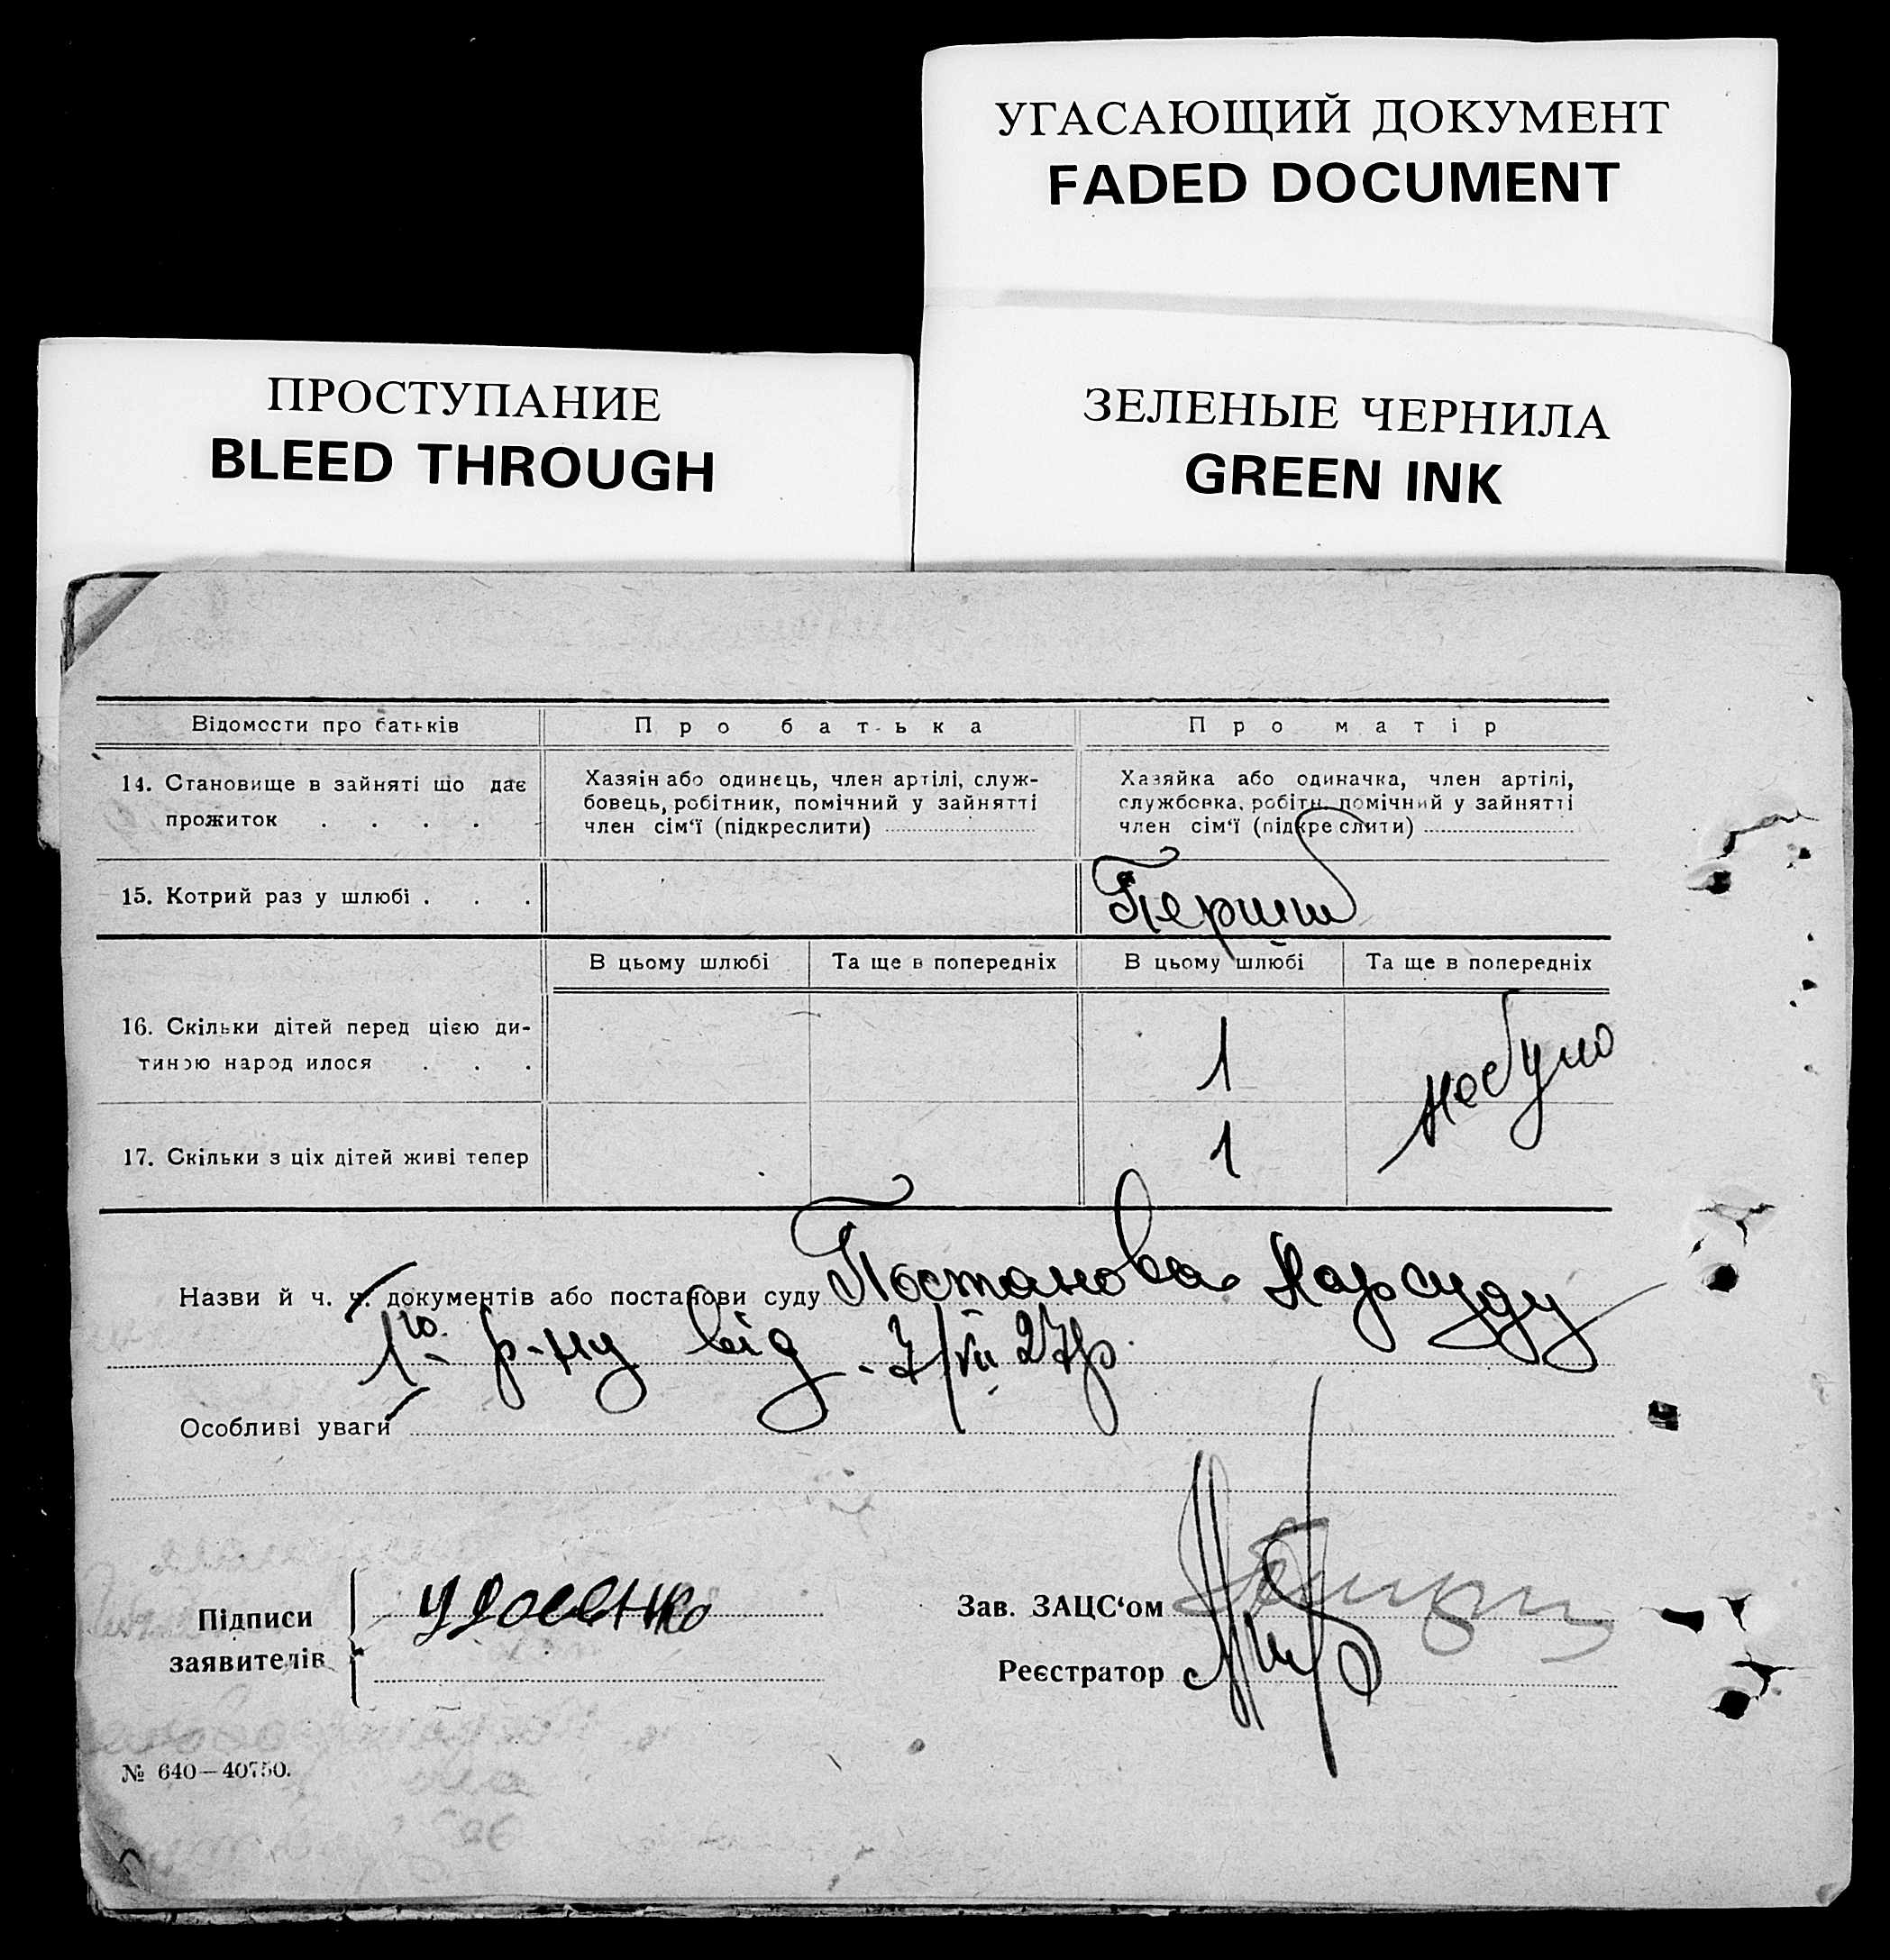 УГАСАЮЩИЙ ДОКУМЕНТ
FADED DOCUMENT
ПРОСТУПАНИЕ
BLEED THROUGH
ЗЕЛЕНЫЕ ЧЕРНИЛА
GREEN INK
Відомости про батьків
Про батька
Про матір
14. Становище в зайняті що дає
прожиток . . . .
Хазяїн або одинець, член артілі, служ-
бовець, робітник, помічний у зайнятті
член сім‘ї (підкреслити)
Хазяйка або одиначка, член артілі,
службовка, робітн. помічний у зайнятті
член сім‘ї (підкреслити)
15. Котрий раз у шлюбі . . .
В цьому шлюбі
Та ще в попередніх
В цьому шлюбі
Та ще в попередніх
16. Скільки дітей перед цією ди-
тиною народилося . . .
1
не було
17. Скільки з ціх дітей живі тепер
1
Назви й ч. ч. документів або постанови суду Постанова Нарсуду
1го р-ну від 7/VII 27р.
Особливі уваги
Підписи
заявителів
Зав. ЗАЦС‘ом
Реєстратор
№ 640—40750.